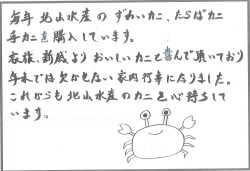 毎年 北山水産の ずわいカニ、たらばカニ
毛カニを購入しています。
衣類、新蔵よりおいしいカニと喜んで頂いており
年末では欠かせない家内行事になりました。
これからも北山水産のカニを心待ちして
います。